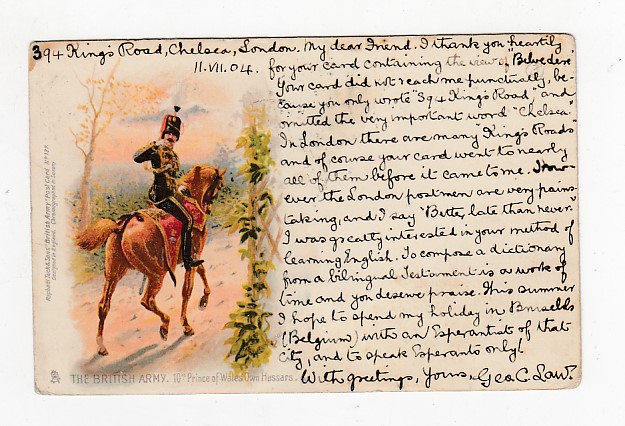 394 King's Road, Chelsea, London. My dear Friend. I thank you heartily
11.VII.04. for your card containing the view of "Belvedere
Your card did not reach me punctually, be-
cause you only wrote "394 King's Road", and
omitted the very important word "Chelsea."
In London there are many "King's Roads"
and of course your card went to nearly
all of them before it came to me. How-
ever the London postmen are very pains-
taking, and I say "Better late than never."
I was greatly interested in your method of
learning English. To compose a dictionary
from a bilingual Testament is a work of
time and you deserve praise. This summer
I hope to spend my holiday in Brussels
(Belgium) with an Esperantist of that
city, and to speak Esperanto only!
With greetings, Yours, Geo. C. Law.
THE BRITISH ARMY. 10th Prince of Wales Own Hussars.
Raphael Tuck & Sons' "British Army" Post Card
Designed in England. Chromographed in Saxony.